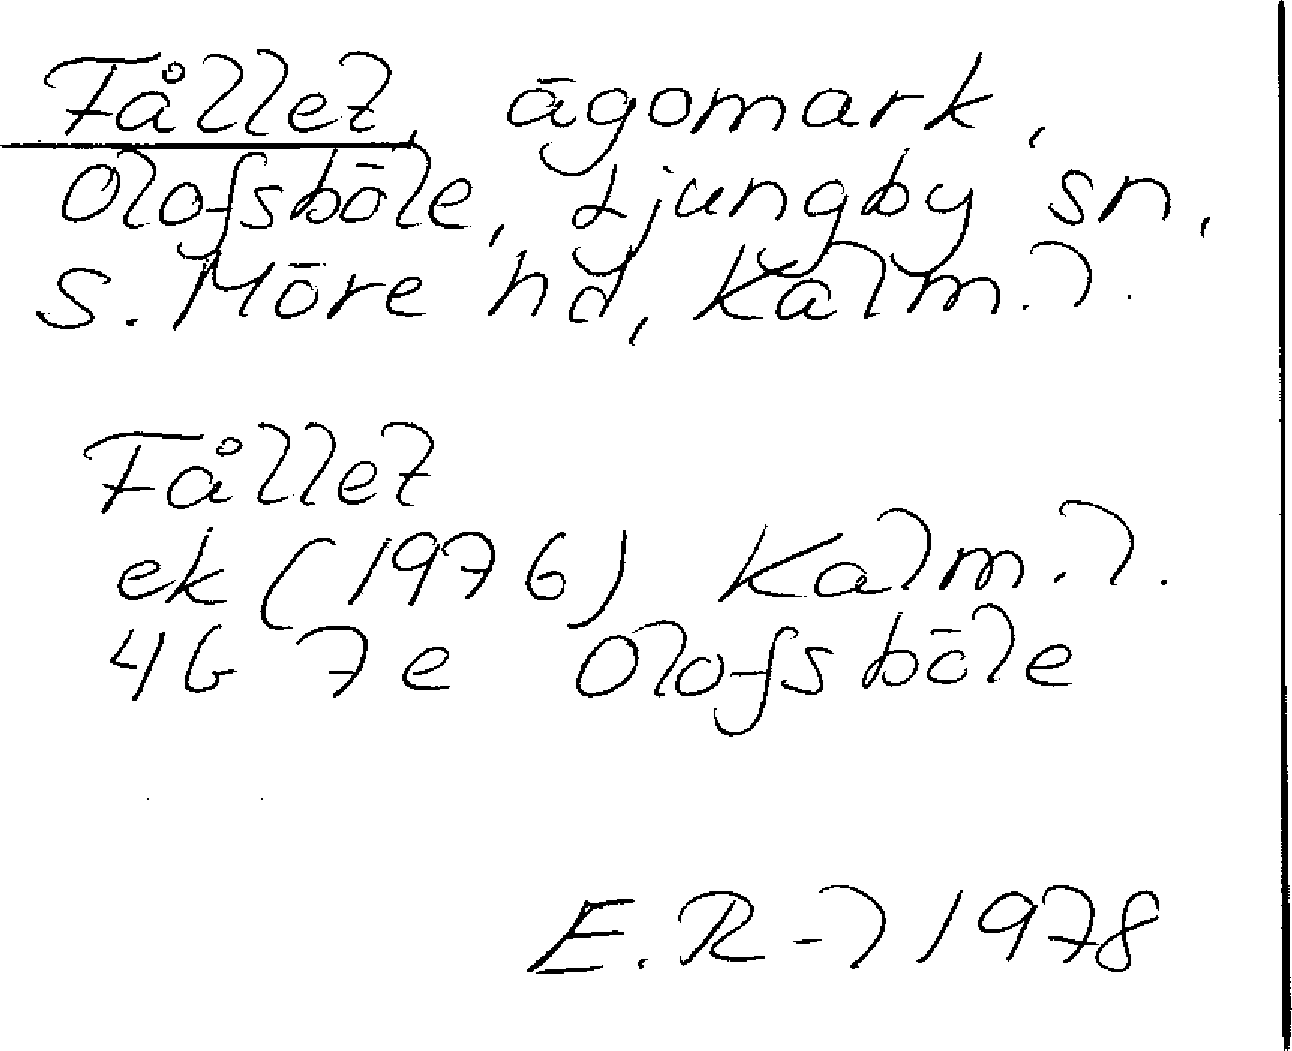 Fållet, ägomark,
Olofsböle, Ljungby sn,
S. Möre hd, Kalm. l.
Fållet
ek (1976) Kalm. l.
4G 7e Olofsböle
E. R-l 1978